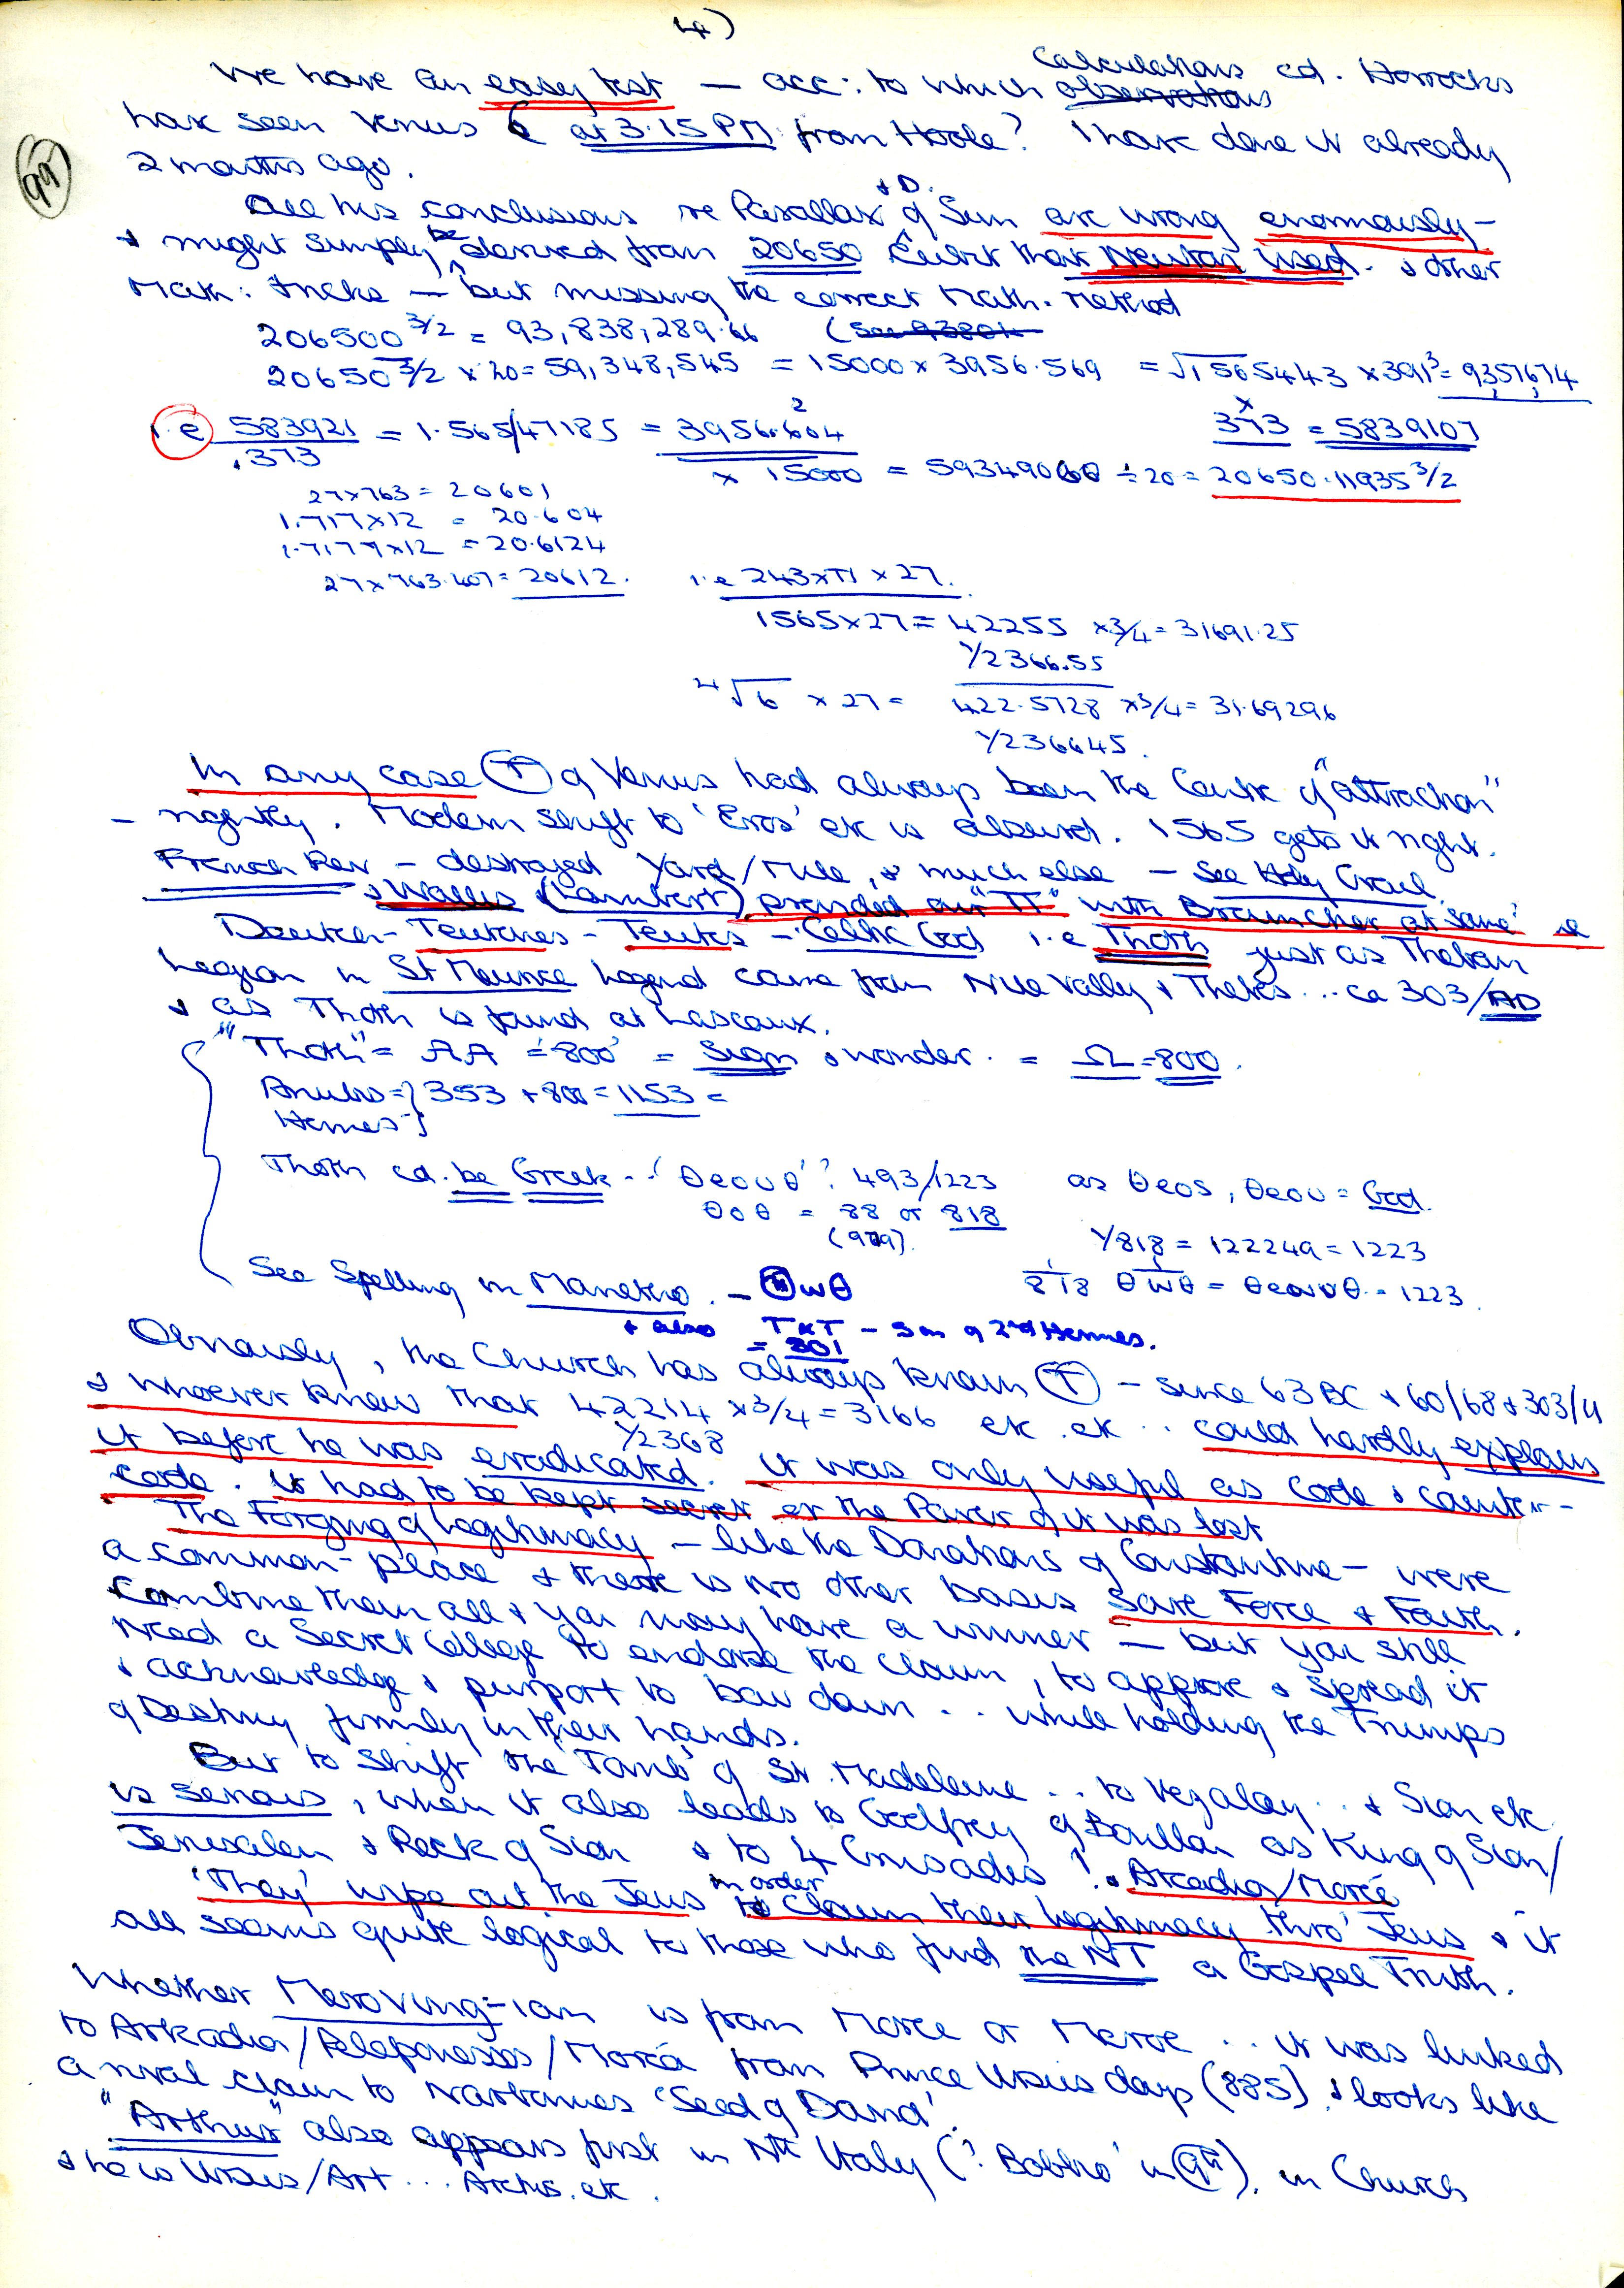 4)
99
We have an easy test — acc: to which calculations cd. Horrocks
observations
have seen Venus @ at 3.15 PM from Hoole? I have done it already
2 months ago.
All his conclusions re Parallax & D. of Sun are wrong enormously —
& might simply be derived from 20650 Cubit that Newton used. & other
Math: tricks — but missing the correct Math. Method
206500 3/2 = 93,838,289.66 (See 93804
20650 3/2 x 20 = 59,348,545 = 15000 x 3956.569 = √1565443 x 391³ = 9357674
i.e 583921 = 1.565/47185 = 3956.604² x 373 = 5839107
.373 x 15000 = 59349060 ÷ 20 = 20650.11935 3/2
27 x 763 = 20601
1.717 x 12 = 20.604
1.7177 x 12 = 20.6124
27 x 763.407 = 20612. i.e 243 x π x 27.
1565 x 27 = 42255 x 3/4 = 31691.25
1/2366.55
4√6 x 27 = 422.5728 x 3/4 = 31.69296
1/236645.
In any case (T) of Venus had always been the Centre of "attraction"
— rightly. Modern shift to 'Eros' etc is absurd. 1565 gets it right.
French Rev — destroyed Yard/Mile, & much else — See Holy Grail
& Wallis (Lambert) provided our "π" with Brouncker at same ie
Deutch - Teutches - Teutes - Celtic God i.e Thoth just as Theban
Legion in St Maurice Legend came from Nile Valley & Thebes... ca 303/AD
& as Thoth is found at Lascaux.
"Thoth" = AA = '800' = Sign & wonder. = Ω = 800.
Anubis = } 353 + 800 = 1153 =
Hermes }
Thoth cd. be Greek .. 'θεουθ'? 493/1223 as θεος, θεου = God.
θοθ = 88 or 818
(979). 1/818 = 122249 = 1223
818 θωθ = θεουθ = 1223.
See Spelling in Manetho. — Θωθ
& also TXT — son of 2nd Hermes.
= 801
Obviously, the Church has always known (T) — since 63 BC & 60/68 & 303/4
& whoever knew that 42214 x 3/4 = 3166 etc. etc .. could hardly explain
1/2368
it before he was eradicated. It was only useful as Code & counter-
code. It had to be kept secret or the Power of it was lost
The Forging of Legitimacy — like the Donations of Constantine — were
a common-place & there is no other basis save Force & Faith.
Combine them all & you may have a winner — but you still
need a Secret College to endorse the claim, to approve & spread it
& acknowledge & purport to bow down .. while holding the Trumps
of Destiny firmly in their hands.
But to shift the 'Tomb' of St. Madeleine .. to Vezalay .. & Sion etc
is serious, when it also leads to Godfrey of Bouillon as King of Sion/
Jerusalem & Rock of Sion & to 4 Crusades! & Arcadia/Morée
'They' wipe out the Jews in order to claim their legitimacy thro' Jews & it
all seems quite logical to those who find the NT a Gospel Truth.
Whether Meroving-ian is from Moree or Meroe .. it was linked
to Arkadia/Peleponesses/Moréa from Prince Ursus days (885) & looks like
a rival claim to Narbonnes 'Seed of David'.
"Arthur" also appears first in Nth Italy (? Bobbio' in 9th). in Church
& he is Ursus/Art ... Arctus. etc.